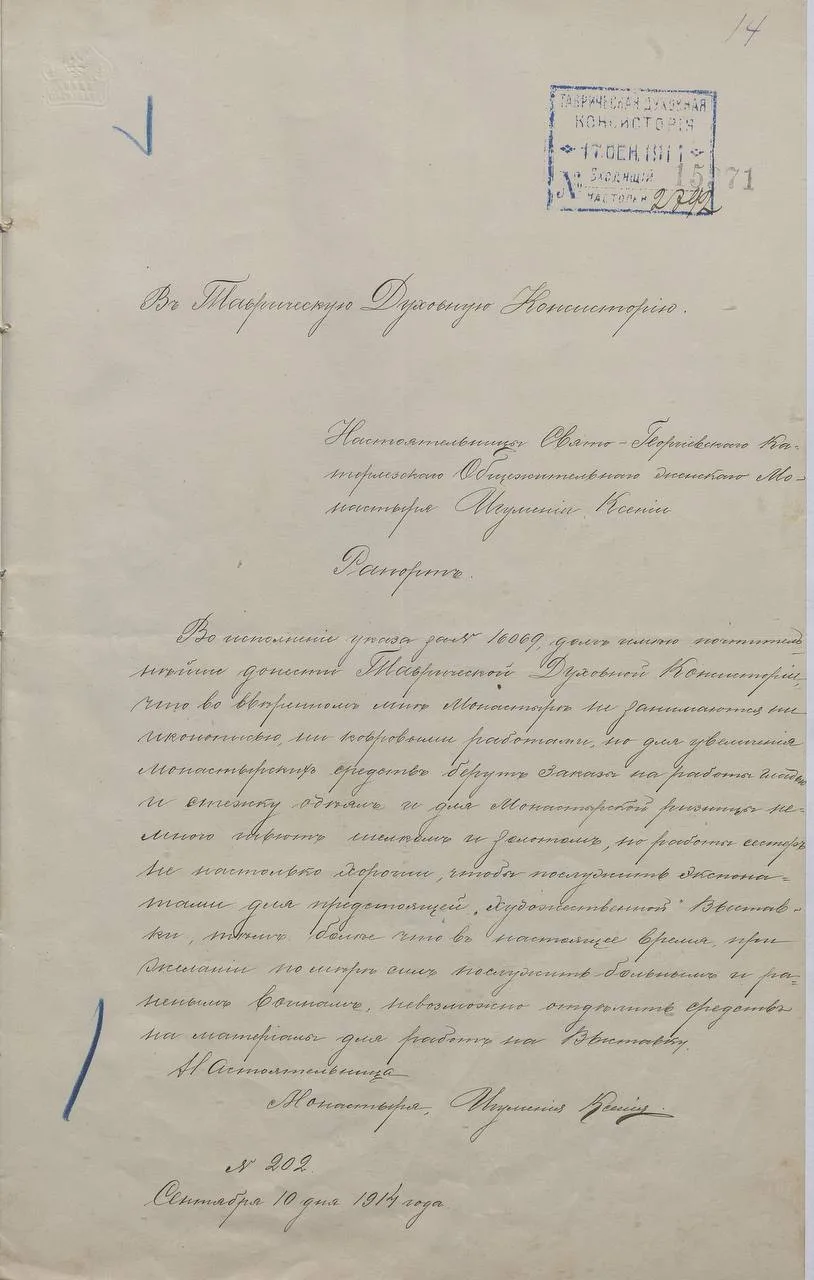 14
ТАВРИЧЕСКАЯ ДУХОВНАЯ
КОНСИСТОРІЯ
17 СЕН. 191
ВХОДЯЩІЙ 15371
№ НАСТОЛЬН 2792
Въ Таврическую Духовную Консисторію.
Настоятельницы Свято-Георгіевскаго Ка-
терлезскаго Общежительнаго женскаго Мо-
настыря Игуменіи Ксеніи
Рапортъ.
Во исполненіе указа за № 16069, долгъ имѣю почтитель-
нѣйше донести Таврической Духовной Консисторіи,
что во ввѣренномъ мнѣ Монастырѣ не занимаются ни
иконописью, ни ковровыми работами, но для увеличенія
Монастырскихъ средствъ берутъ заказы на работы гладью
и стежку одѣялъ и для Монастырской ризницы не-
много шьютъ шелкомъ и золотомъ, но работы сестеръ
не настолько хороши, чтобы послужить экспона-
тами для предстоящей „художественной" Выстав-
ки, тѣмъ болѣе что въ настоящее время, при
желаніи по мѣрѣ силъ послужить больнымъ и ра-
ненымъ воинамъ, невозможно отдѣлить средствъ
на матеріалы для работъ на Выставку.
Настоятельница
Монастыря, Игуменія Ксенія
№ 202.
Сентября 10 дня 1914 года.